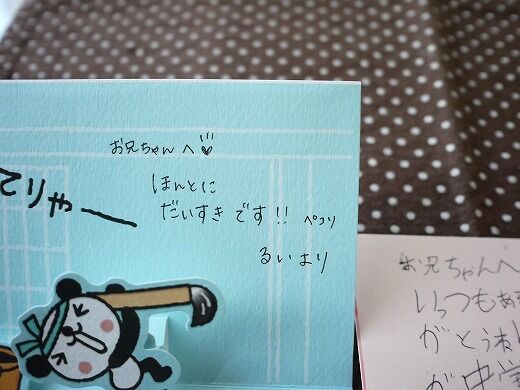 お兄ちゃんへ♡
てりゃー
ほんとに
だいすきです!! ペコリ
るいより
お兄ちゃんへ
いっつもあ
がとうね
が中学